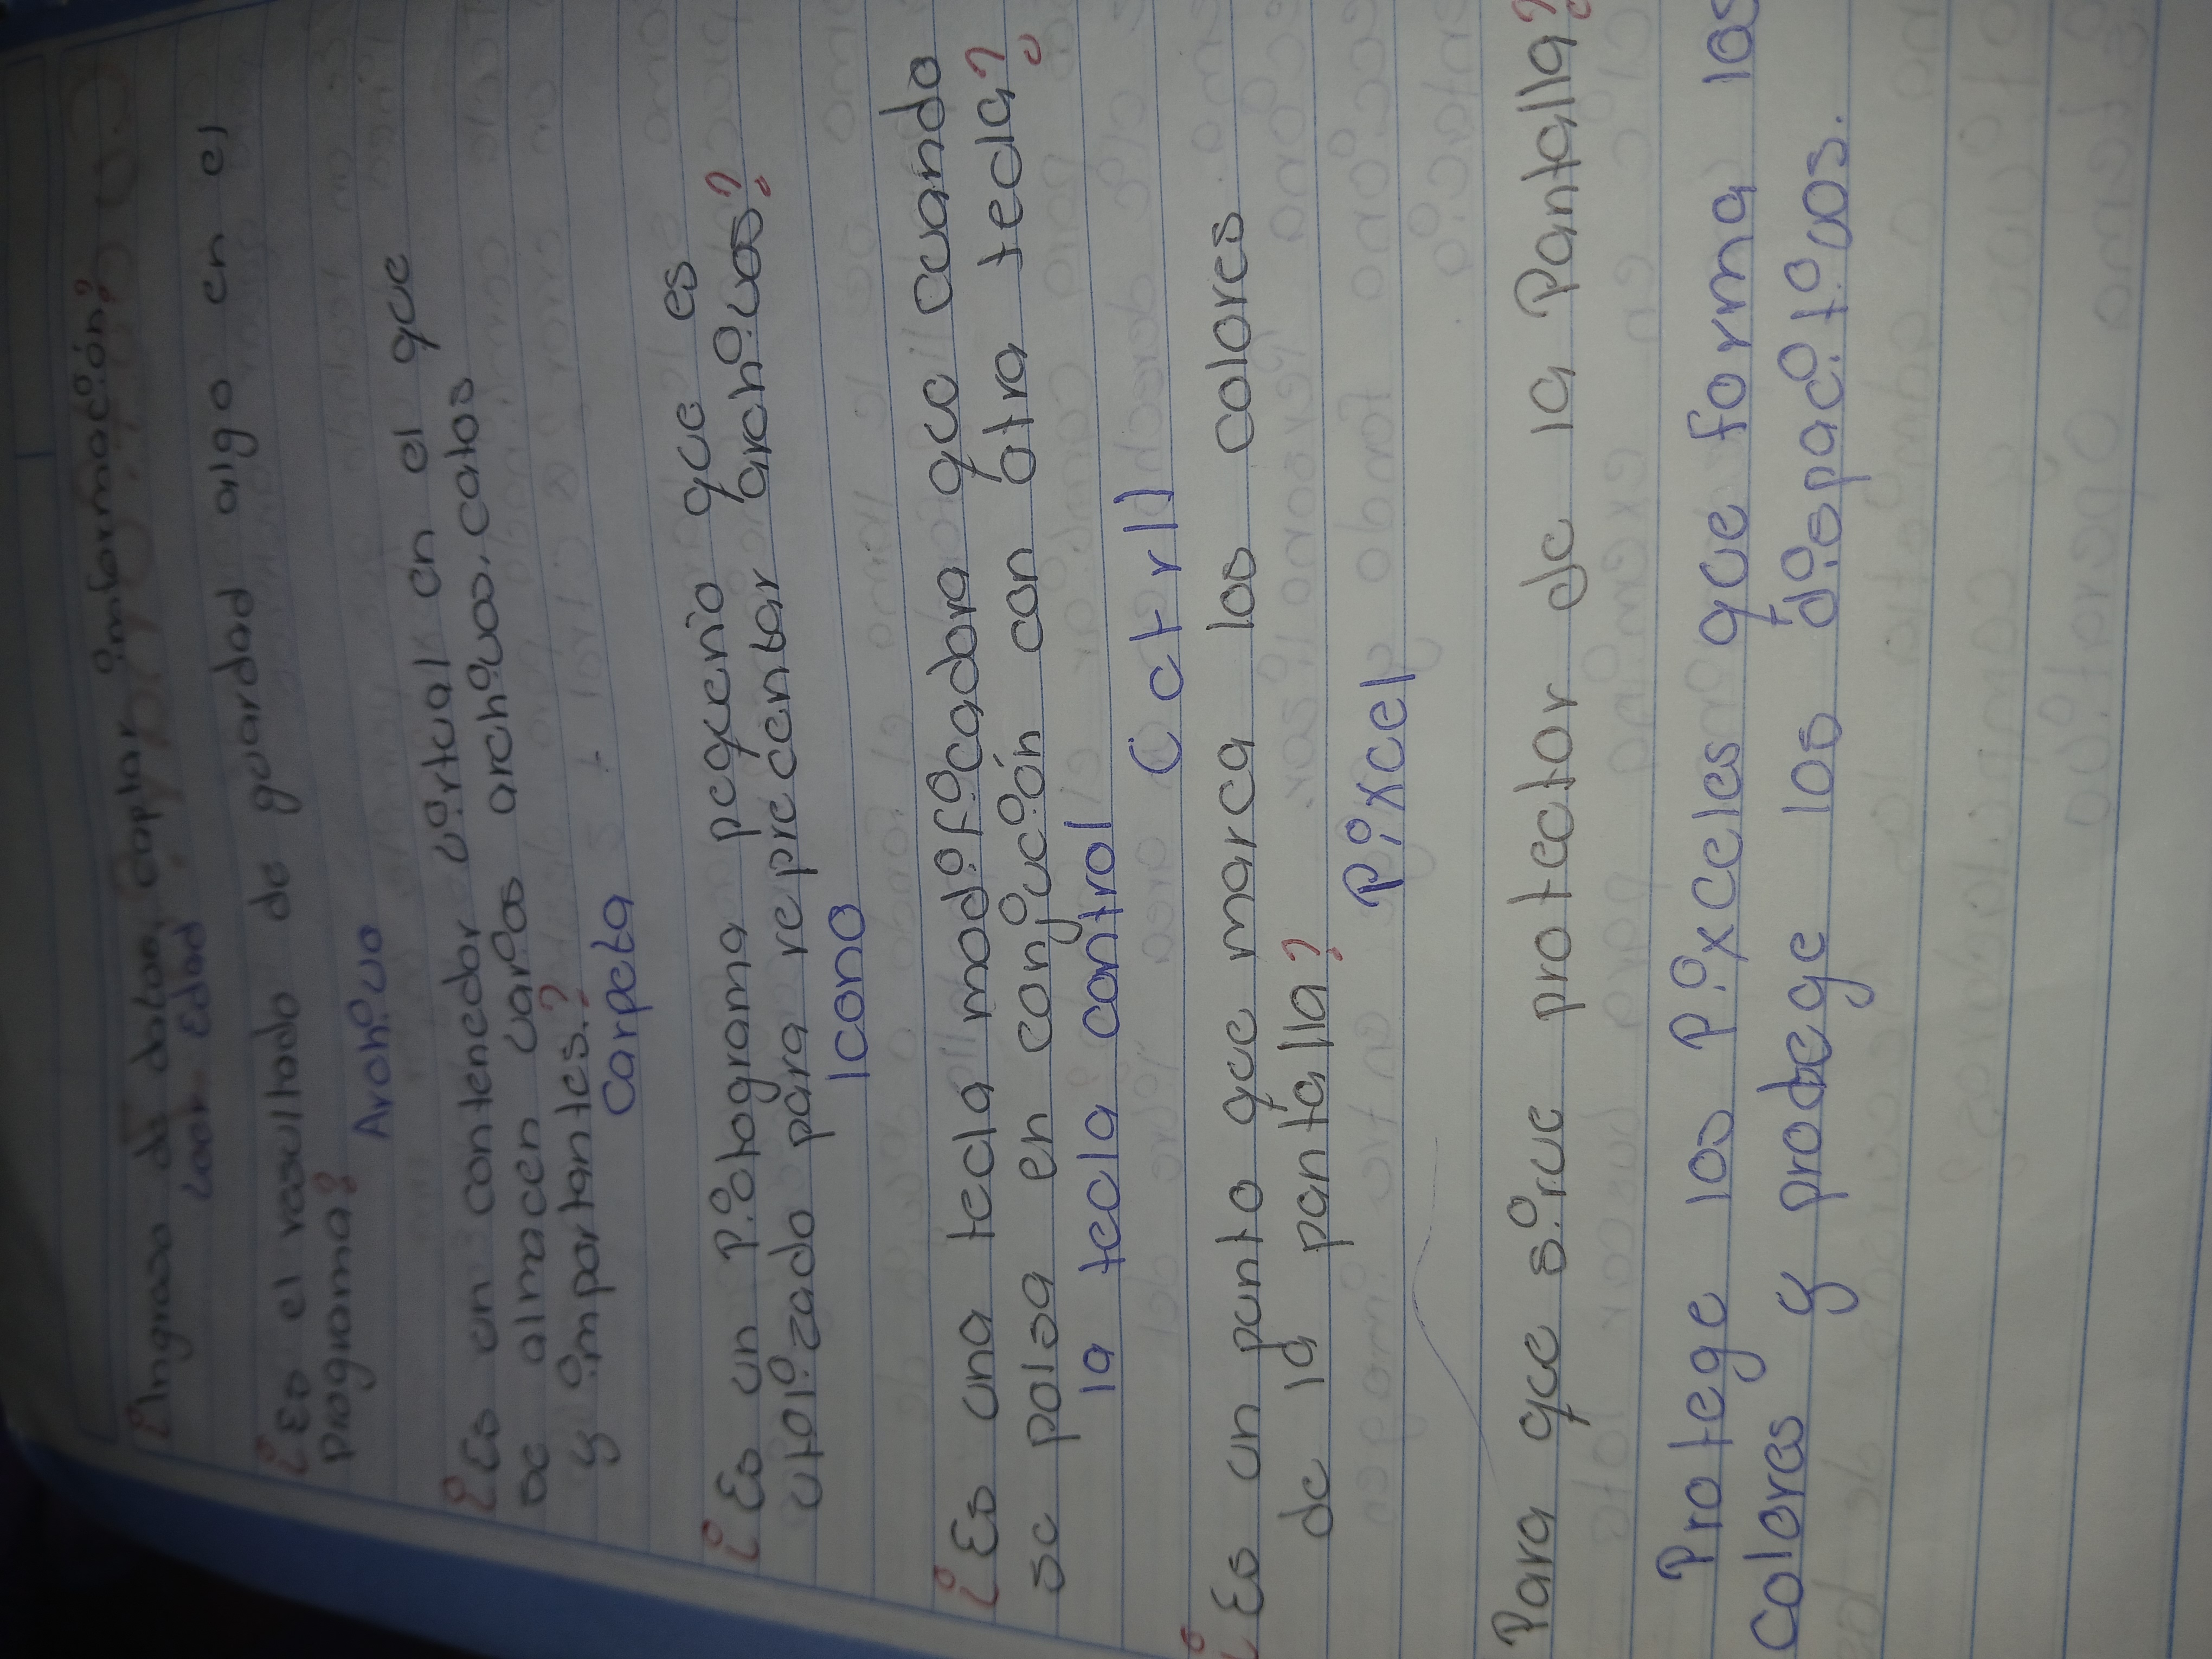 ¿Ingraso de datos, captar imformación?
Edad
¿Es el resultado de guardad algo en el
programa?
Archivo
¿Es un contenedor virtual en el que
se almacen varios archivos. catos
y importantes.?
Carpeta
¿Es un pictograma pequenio que es
utilizado para reprecentar archivos?
Icono
¿Es una tecla modificadora que cuando
se polsa en conjución con otra tecla?
la tecla control (ctrl)
¿Es un punto que marca los colores
de la pantalla?
Pixcel
Para que sirve protector de la Pantalla?
Protege los Pixceles que forma los
colores y protege los dispacitivos.